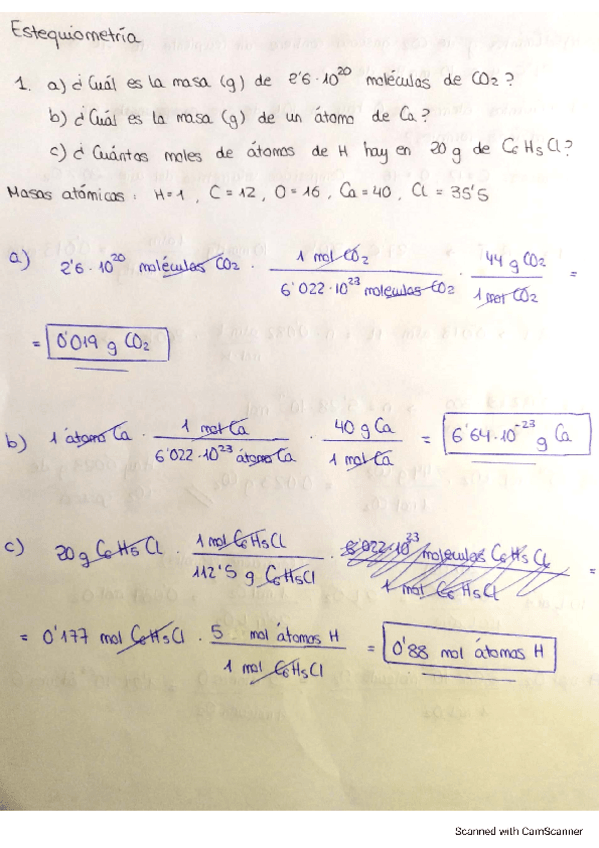 Estequiometría
1. a) ¿Cuál es la masa (g) de 2'6·10²⁰ moléculas de CO₂?
b) ¿Cuál es la masa (g) de un átomo de Ca?
c) ¿Cuántos moles de átomos de H hay en 20 g de C₆H₅Cl?
Masas atómicas: H=1, C=12, O=16, Ca=40, Cl=35'5
a) 2'6·10²⁰ moléculas CO₂ · 1 mol CO₂ / 6'022·10²³ moléculas CO₂ · 44 g CO₂ / 1 mol CO₂ =
= 0'019 g CO₂
b) 1 átomo Ca · 1 mol Ca / 6'022·10²³ átomos Ca · 40 g Ca / 1 mol Ca = 6'64·10⁻²³ g Ca
c) 20 g C₆H₅Cl · 1 mol C₆H₅Cl / 112'5 g C₆H₅Cl · 6'022·10²³ moléculas C₆H₅Cl / 1 mol C₆H₅Cl =
= 0'177 mol C₆H₅Cl · 5 mol átomos H / 1 mol C₆H₅Cl = 0'88 mol átomos H
Scanned with CamScanner